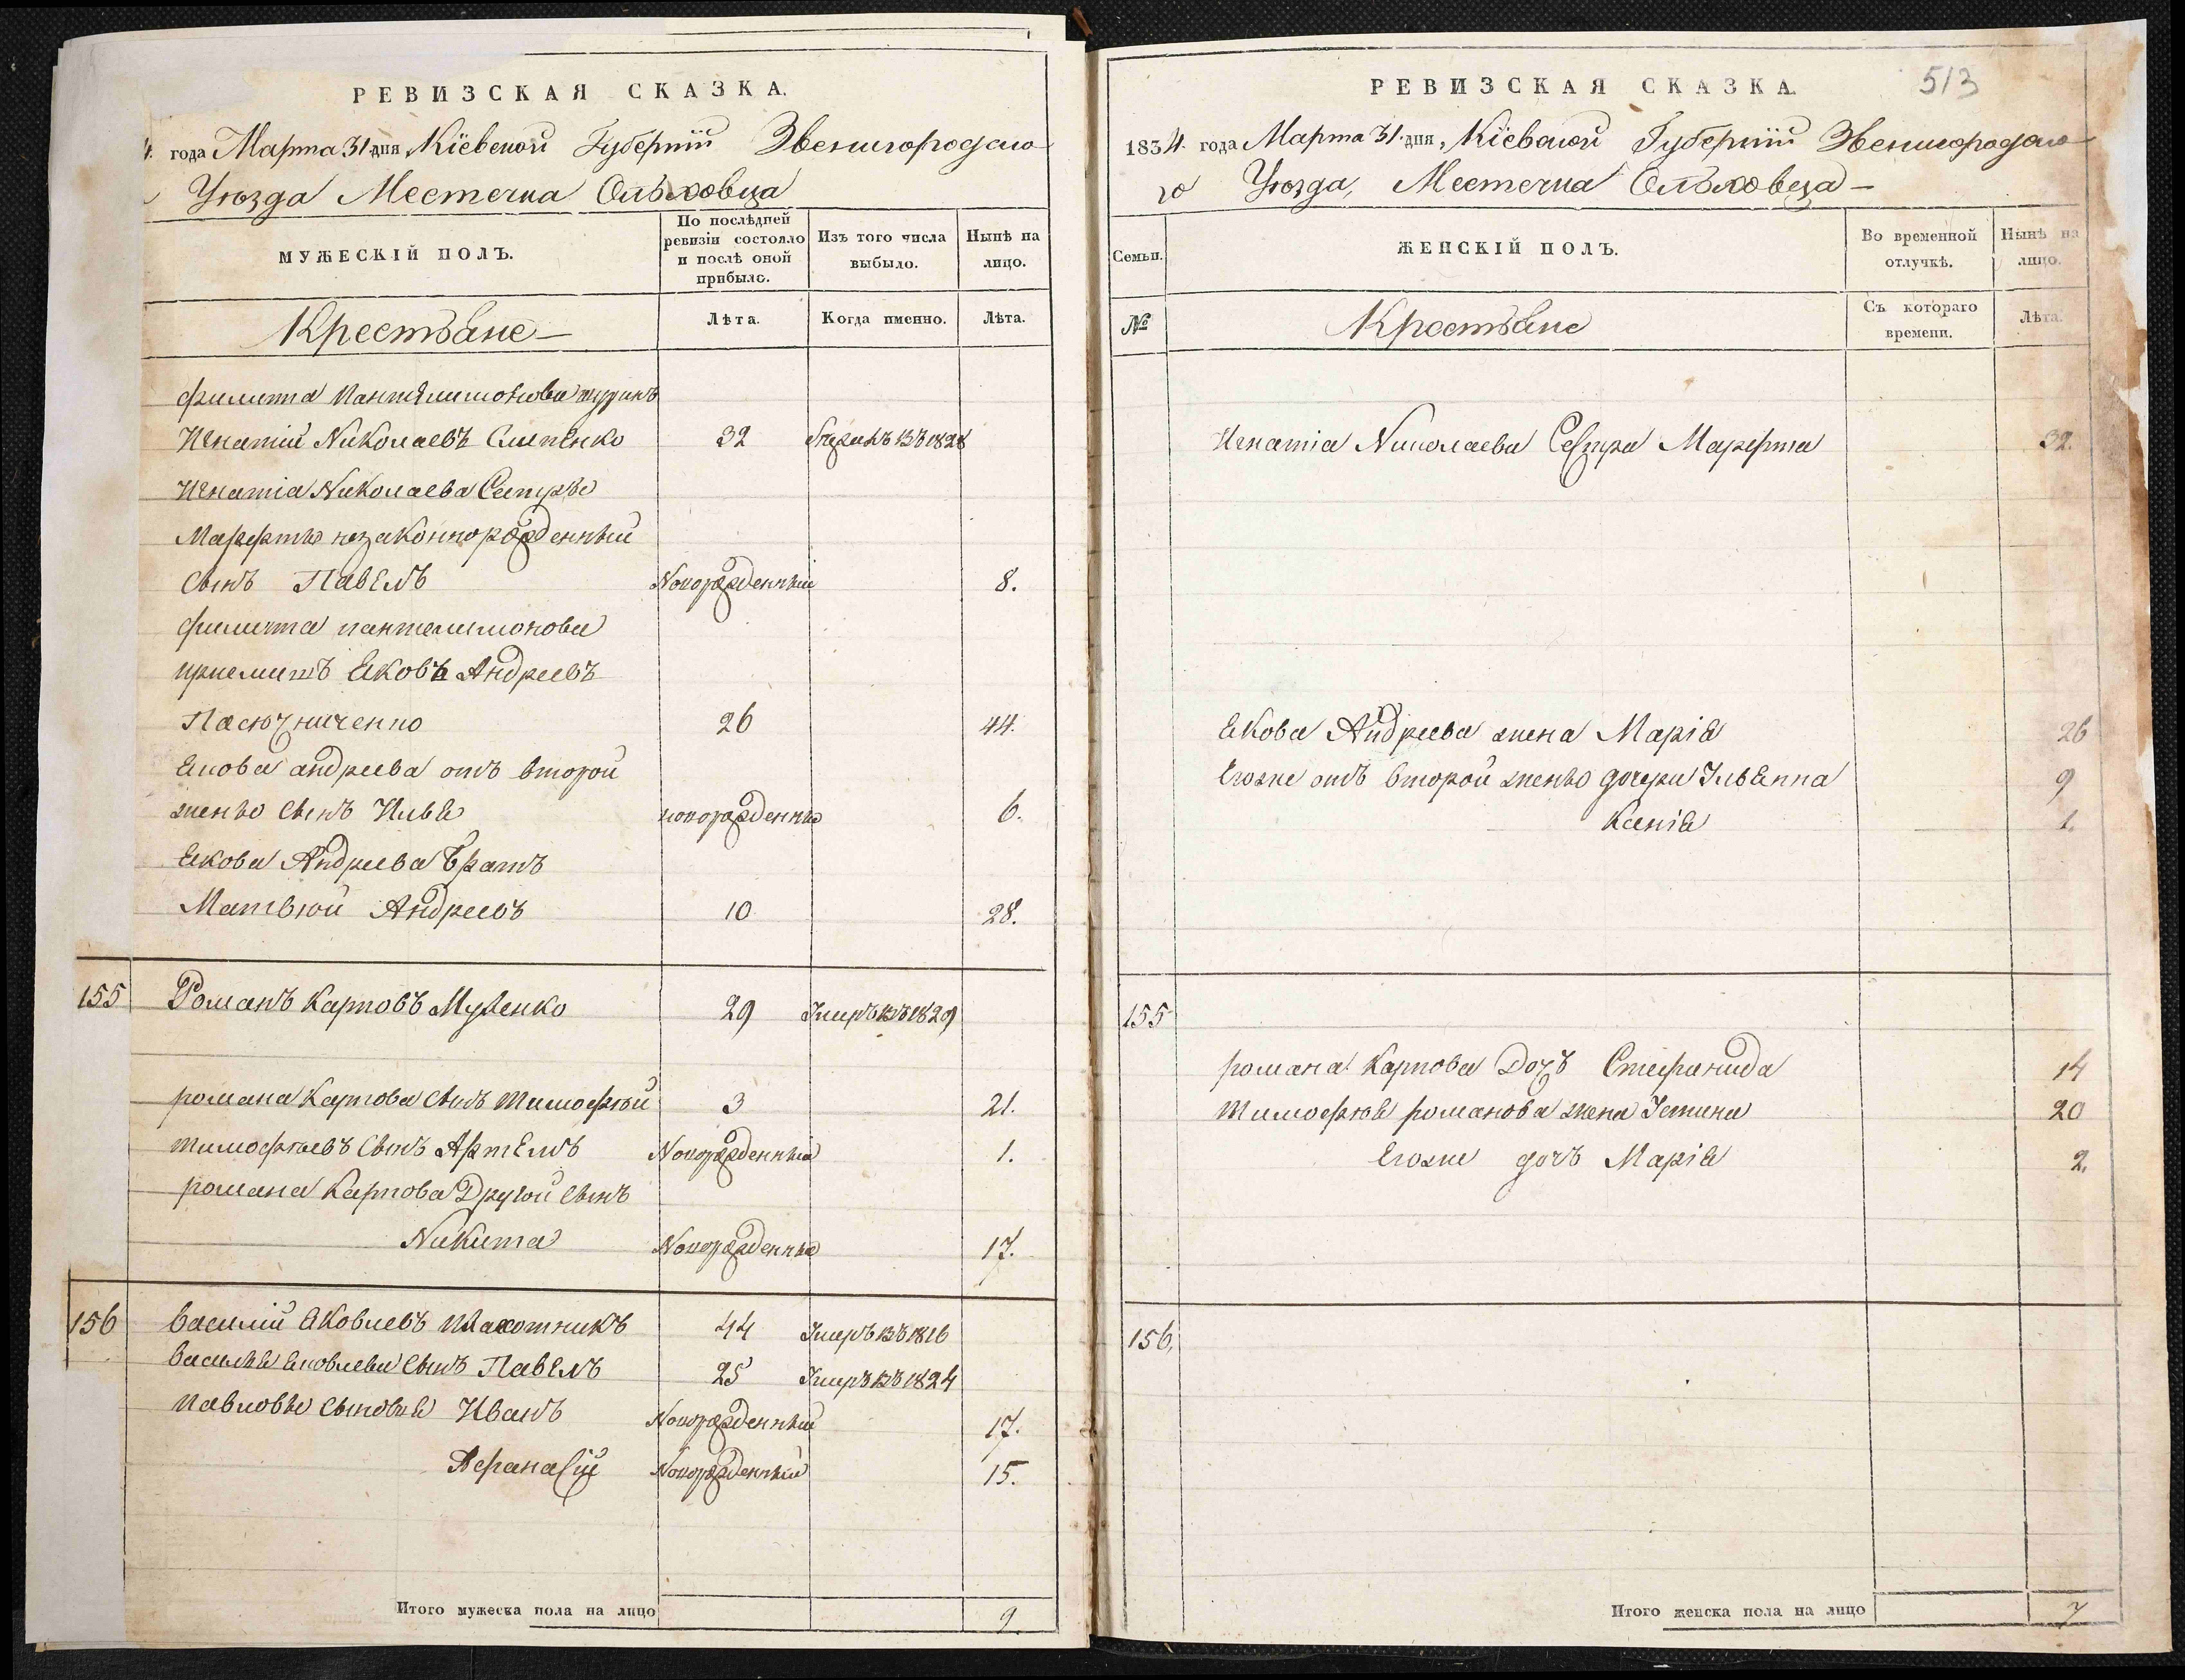 РЕВИЗСКАЯ СКАЗКА.
4. года Марта 31 дня Кіевской Губерніи Звенигородско
Уѣзда Местечка Ольховца
МУЖЕСКІЙ ПОЛЪ.
По послѣдней ревизіи состояло и послѣ оной прибыло.
Изъ того числа выбыло.
Нынѣ на лицо.
Крестьяне
Лѣта.
Когда именно.
Лѣта.
филипа Пантялимонова шуринъ
Игнатій Николаевъ 32 1828
Игнатіа Николаева Сестры
Марфты незаконнорожденный
сынъ Павелъ Новорожденный 8.
филипа пантелимонова
приемышъ Яковъ Андреевъ
Пасючниченко 26 44.
Якова андреева отъ второй
жены сынъ Илья новорожденны 6.
Якова Андреева братъ
Матвѣй Андреевъ 10 28.
155 Романъ Карповъ 29 Умеръ въ 1829
романа Карпова сынъ тимофѣй 3 21.
тимофѣевъ сынъ Артемъ Новорожденный 1.
романа Карпова Другой сынъ
Никита Новорожденны 17.
156 Василій Яковлевъ 44 Умеръ въ 1816
Василья Яковлева сынъ Павелъ 25 Умеръ въ 1824
Павловы сыновья Иванъ Новорожденный 17.
Афанасій Новорожденный 15.
Итого мужеска пола на лицо 9.
РЕВИЗСКАЯ СКАЗКА.
513
1834 года Марта 31 дня, Кіевской Губерніи Звенигородско
го Уѣзда, Местечка Ольховца
Семьи.
ЖЕНСКІЙ ПОЛЪ.
Во временной отлучкѣ.
Нынѣ на лицо.
№
Крестьяне
Съ котораго времени.
Лѣта.
Игнатіа Николаева Сестра Марфта 32.
Якова Андреева жена Марія 26
Егоже отъ второй жены дочери Ульянна 9
Ксенія 1.
155
романа Карпова Дочь Стефанида 14
тимофѣя романова жена Устина 20
Егоже дочь Марія 2.
156.
Итого женска пола на лицо 7